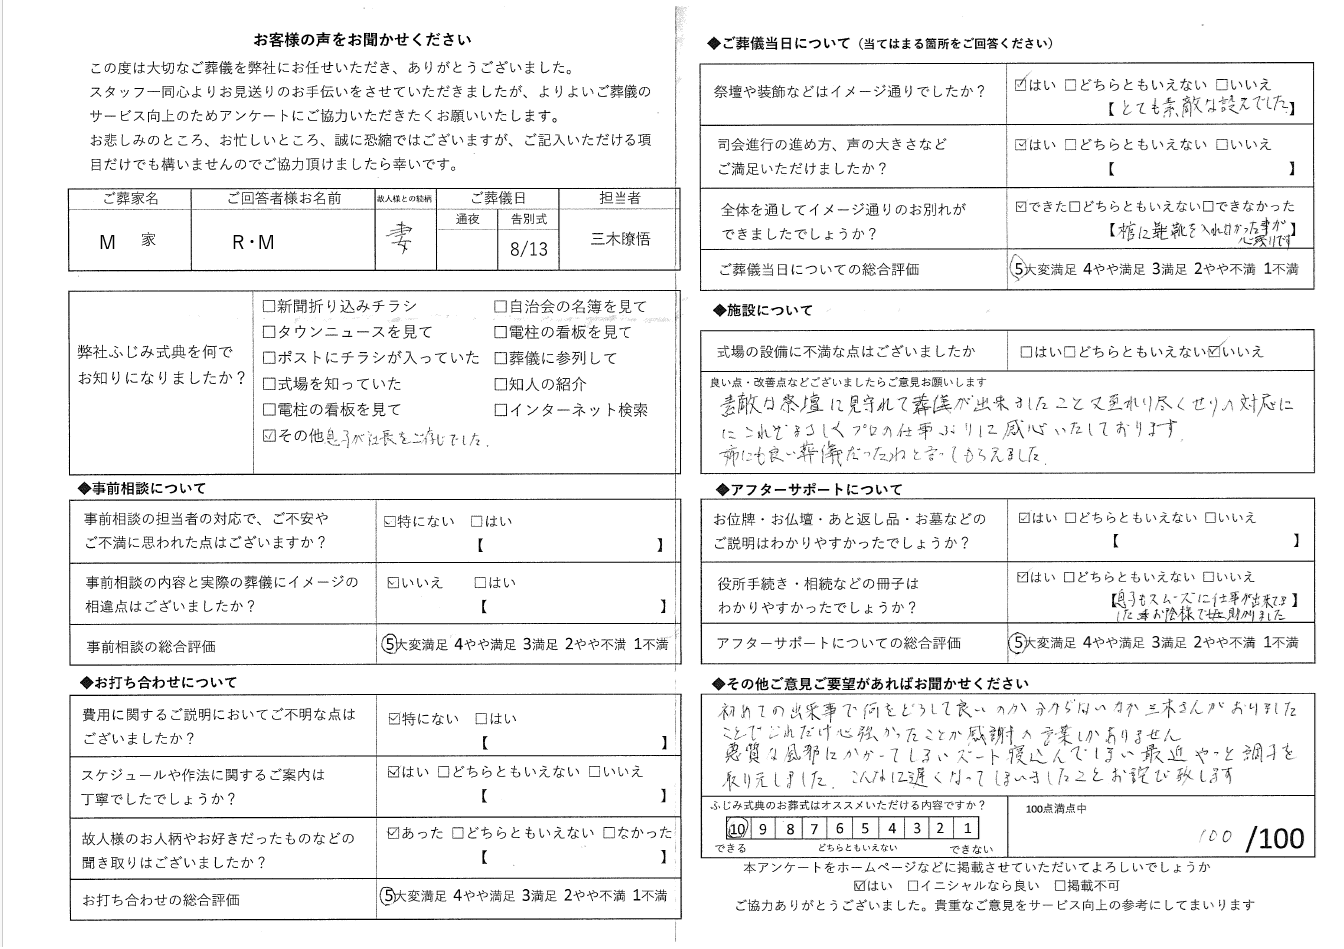 お客様の声をお聞かせください
この度は大切なご葬儀を弊社にお任せいただき、ありがとうございました。
スタッフ一同心よりお見送りのお手伝いをさせていただきましたが、よりよいご葬儀の
サービス向上のためアンケートにご協力いただきたくお願いいたします。
お悲しみのところ、お忙しいところ、誠に恐縮ではございますが、ご記入いただける項
目だけでも構いませんのでご協力頂けましたら幸いです。
ご葬家名 ご回答者様お名前 故人様との続柄 ご葬儀日 担当者
通夜 告別式
M 家 R・M 妻 8/13 三木暸悟
弊社ふじみ式典を何で
お知りになりましたか?
☐新聞折り込みチラシ ☐自治会の名簿を見て
☐タウンニュースを見て ☐電柱の看板を見て
☐ポストにチラシが入っていた ☐葬儀に参列して
☐式場を知っていた ☐知人の紹介
☐電柱の看板を見て ☐インターネット検索
☑その他 息子が社長をご存じでした.
◆事前相談について
事前相談の担当者の対応で、ご不安や
ご不満に思われた点はございますか?
☑特にない ☐はい
【 】
事前相談の内容と実際の葬儀にイメージの
相違点はございましたか?
☑いいえ ☐はい
【 】
事前相談の総合評価 ⑤大変満足 4やや満足 3満足 2やや不満 1不満
◆お打ち合わせについて
費用に関するご説明においてご不明な点は
ございましたか?
☑特にない ☐はい
【 】
スケジュールや作法に関するご案内は
丁寧でしたでしょうか?
☑はい ☐どちらともいえない ☐いいえ
【 】
故人様のお人柄やお好きだったものなどの
聞き取りはございましたか?
☑あった ☐どちらともいえない ☐なかった
【 】
お打ち合わせの総合評価 ⑤大変満足 4やや満足 3満足 2やや不満 1不満
◆ご葬儀当日について（当てはまる箇所をご回答ください）
祭壇や装飾などはイメージ通りでしたか?
☑はい ☐どちらともいえない ☐いいえ
【とても素敵な設えでした】
司会進行の進め方、声の大きさなど
ご満足いただけましたか?
☑はい ☐どちらともいえない ☐いいえ
【 】
全体を通してイメージ通りのお別れが
できましたでしょうか?
☑できた☐どちらともいえない☐できなかった
【棺に 靴を入れなかった事が
心残りです】
ご葬儀当日についての総合評価 ⑤大変満足 4やや満足 3満足 2やや不満 1不満
◆施設について
式場の設備に不満な点はございましたか ☐はい☐どちらともいえない☑いいえ
良い点・改善点などございましたらご意見お願いします
素敵な祭壇に見守れて葬儀が出来ましたこと又至れり尽くせりの対応に
にこれぞまさしくプロの仕事ぶりに感心いたしております.
姉にも良い葬儀だったねと言ってもらえました.
◆アフターサポートについて
お位牌・お仏壇・あと返し品・お墓などの
ご説明はわかりやすかったでしょうか?
☑はい ☐どちらともいえない ☐いいえ
【 】
役所手続き・相続などの冊子は
わかりやすかったでしょうか?
☑はい ☐どちらともいえない ☐いいえ
【息子もスムーズに仕事が出来てま】
した お陰様で 助かりました
アフターサポートについての総合評価 ⑤大変満足 4やや満足 3満足 2やや不満 1不満
◆その他ご意見ご要望があればお聞かせください
初めての出来事で何をどうして良いのか分からないなか三木さんがおりました
ことでどれだけ心強かったことか感謝の言葉しかありません
悪質な風邪にかかってしまいズート寝込んでしまい最近やっと調子を
取り元しました. こんなに遅くなってしまいましたことお詫び致します
ふじみ式典のお葬式はオススメいただける内容ですか?
⑩ 9 8 7 6 5 4 3 2 1
できる どちらともいえない できない
100点満点中
100 /100
本アンケートをホームページなどに掲載させていただいてよろしいでしょうか
☑はい ☐イニシャルなら良い ☐掲載不可
ご協力ありがとうございました。貴重なご意見をサービス向上の参考にしてまいります